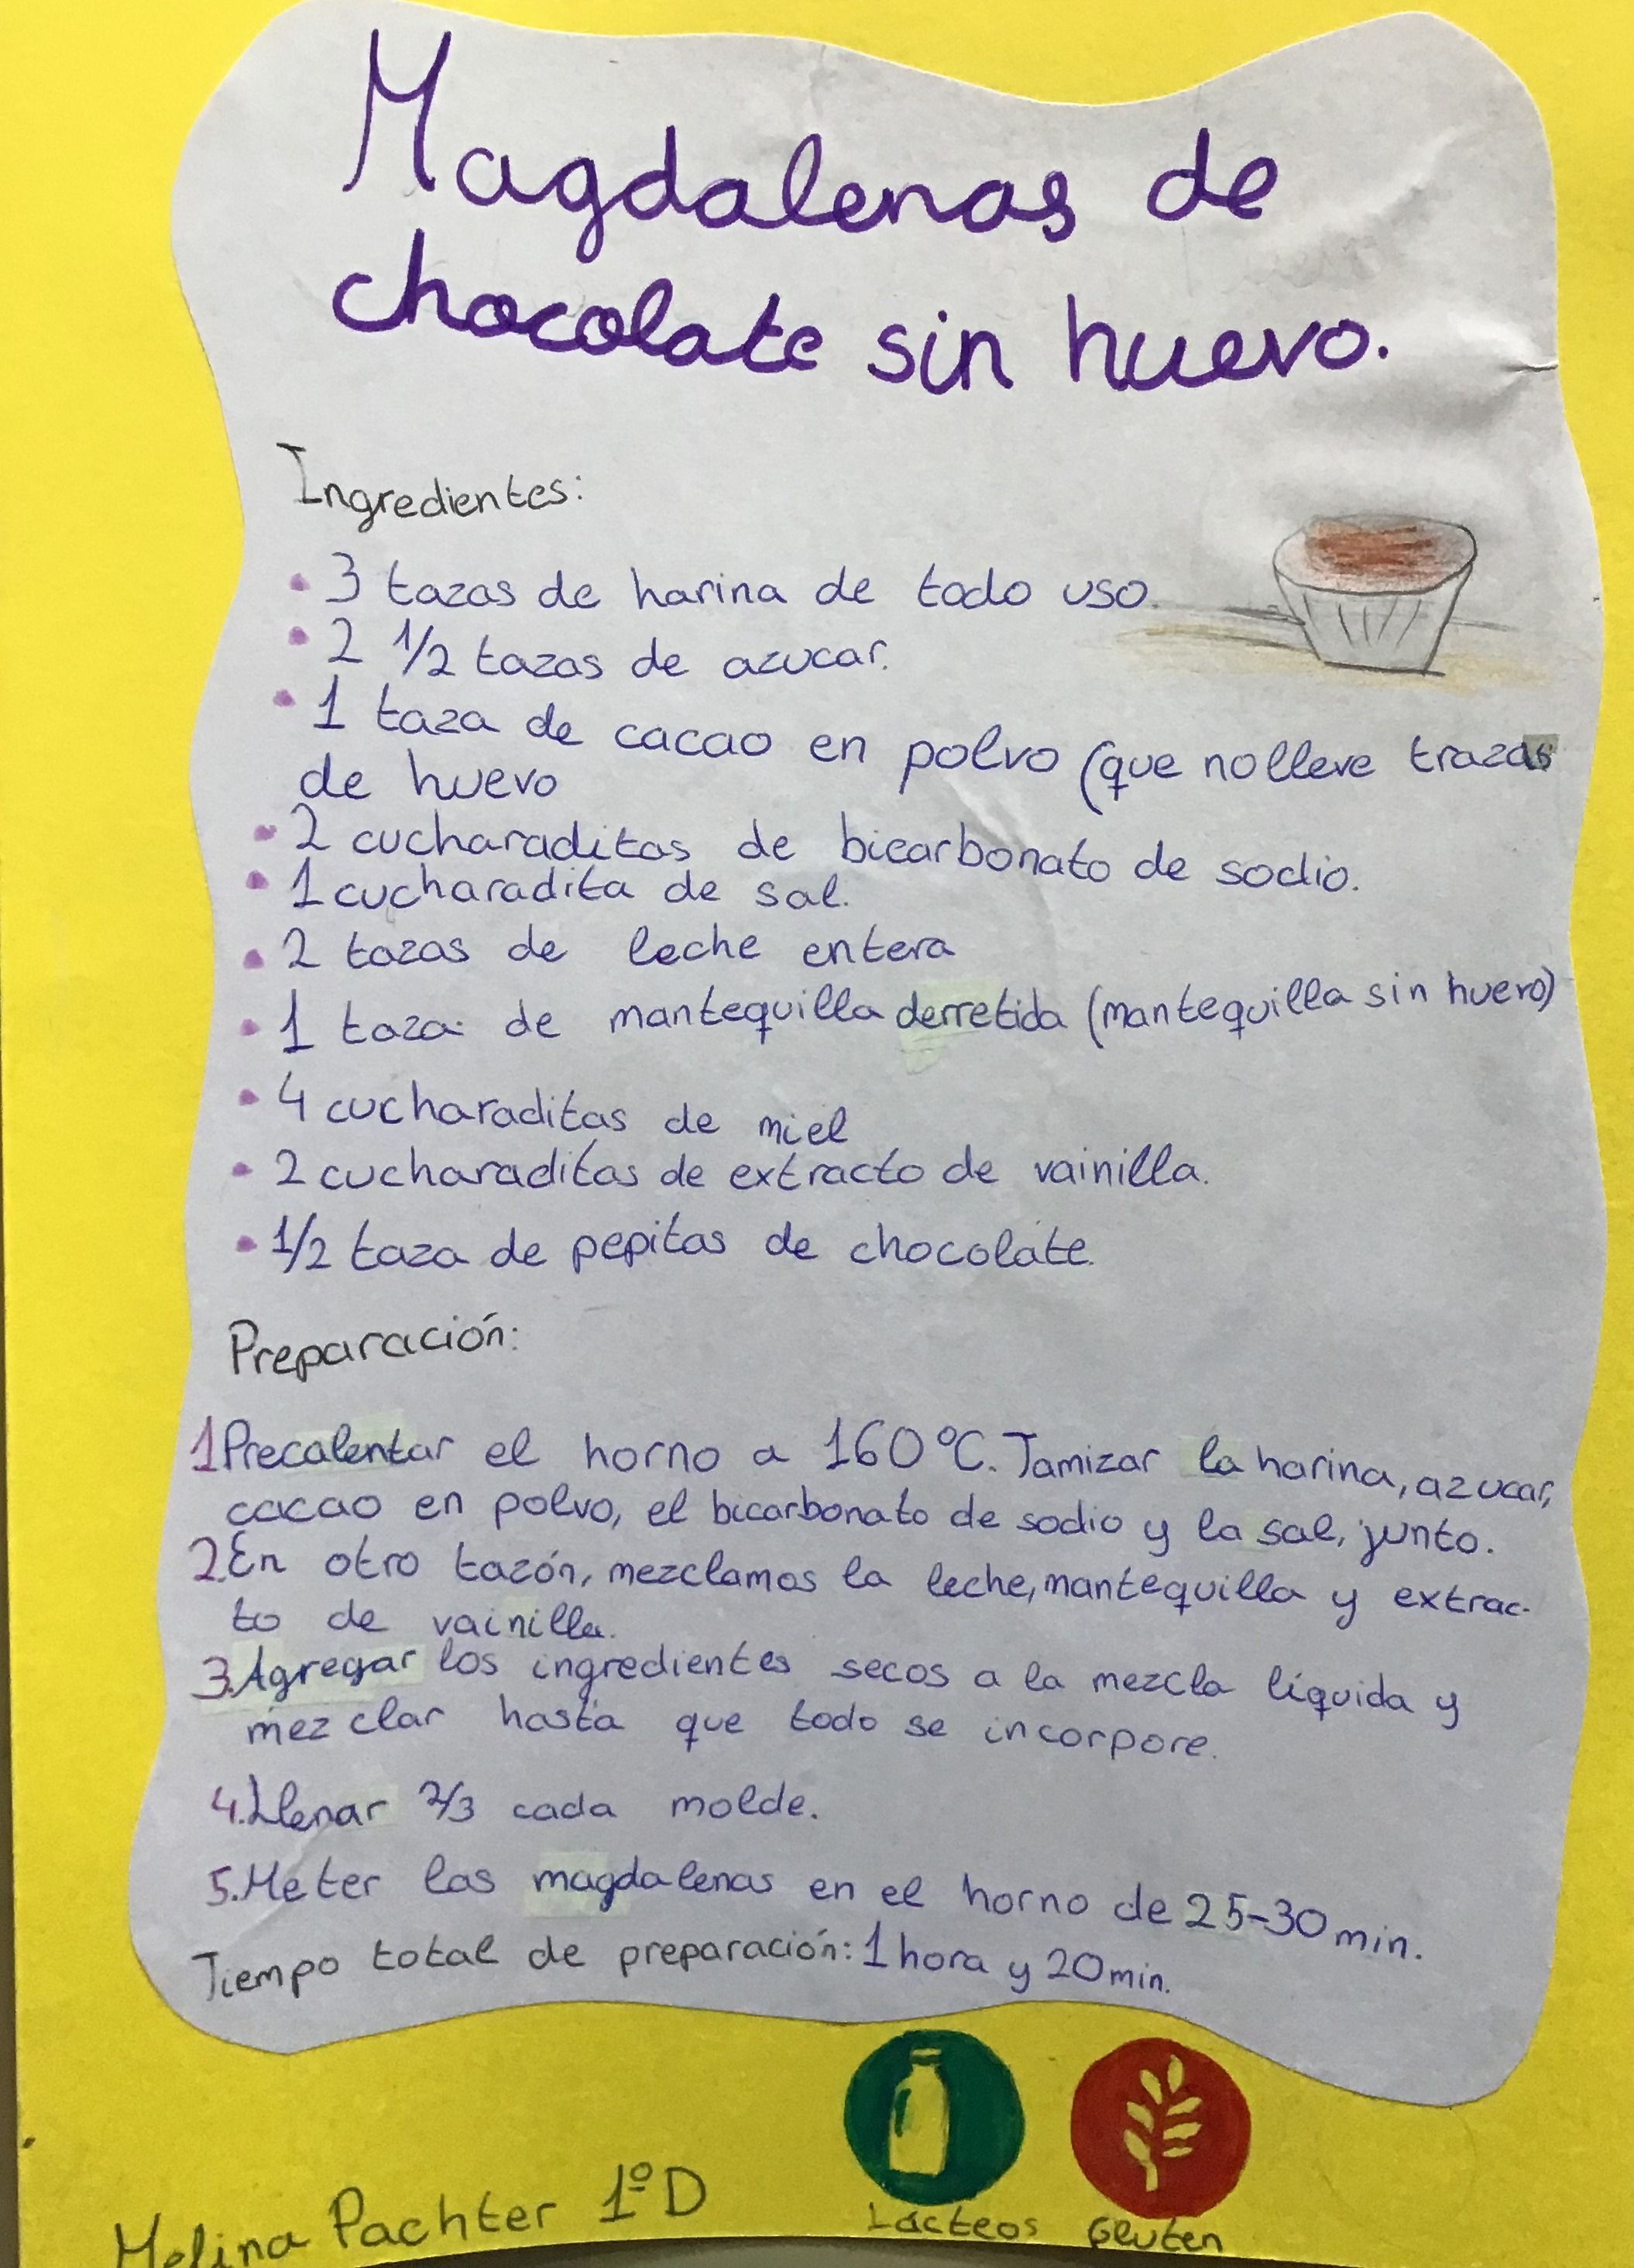 Magdalenas de
chocolate sin huevo.
Ingredientes:
• 3 tazas de harina de todo uso.
• 2 1/2 tazas de azucar.
• 1 taza de cacao en polvo (que no lleve trazas
de huevo
• 2 cucharaditas de bicarbonato de sodio.
• 1 cucharadita de sal.
• 2 tazas de leche entera
• 1 taza de mantequilla derretida (mantequilla sin huevo)
• 4 cucharaditas de miel
• 2 cucharaditas de extracto de vainilla.
• 1/2 taza de pepitas de chocolate.
Preparación:
1 Precalentar el horno a 160°C. Tamizar la harina, azucar,
cacao en polvo, el bicarbonato de sodio y la sal, junto.
2. En otro tazón, mezclamos la leche, mantequilla y extrac-
to de vainilla.
3. Agregar los ingredientes secos a la mezcla líquida y
mezclar hasta que todo se incorpore.
4. Llenar 2/3 cada molde.
5. Meter las magdalenas en el horno de 25-30 min.
Tiempo total de preparación: 1 hora y 20 min.
Lácteos Gluten
Melina Pachter 1º D